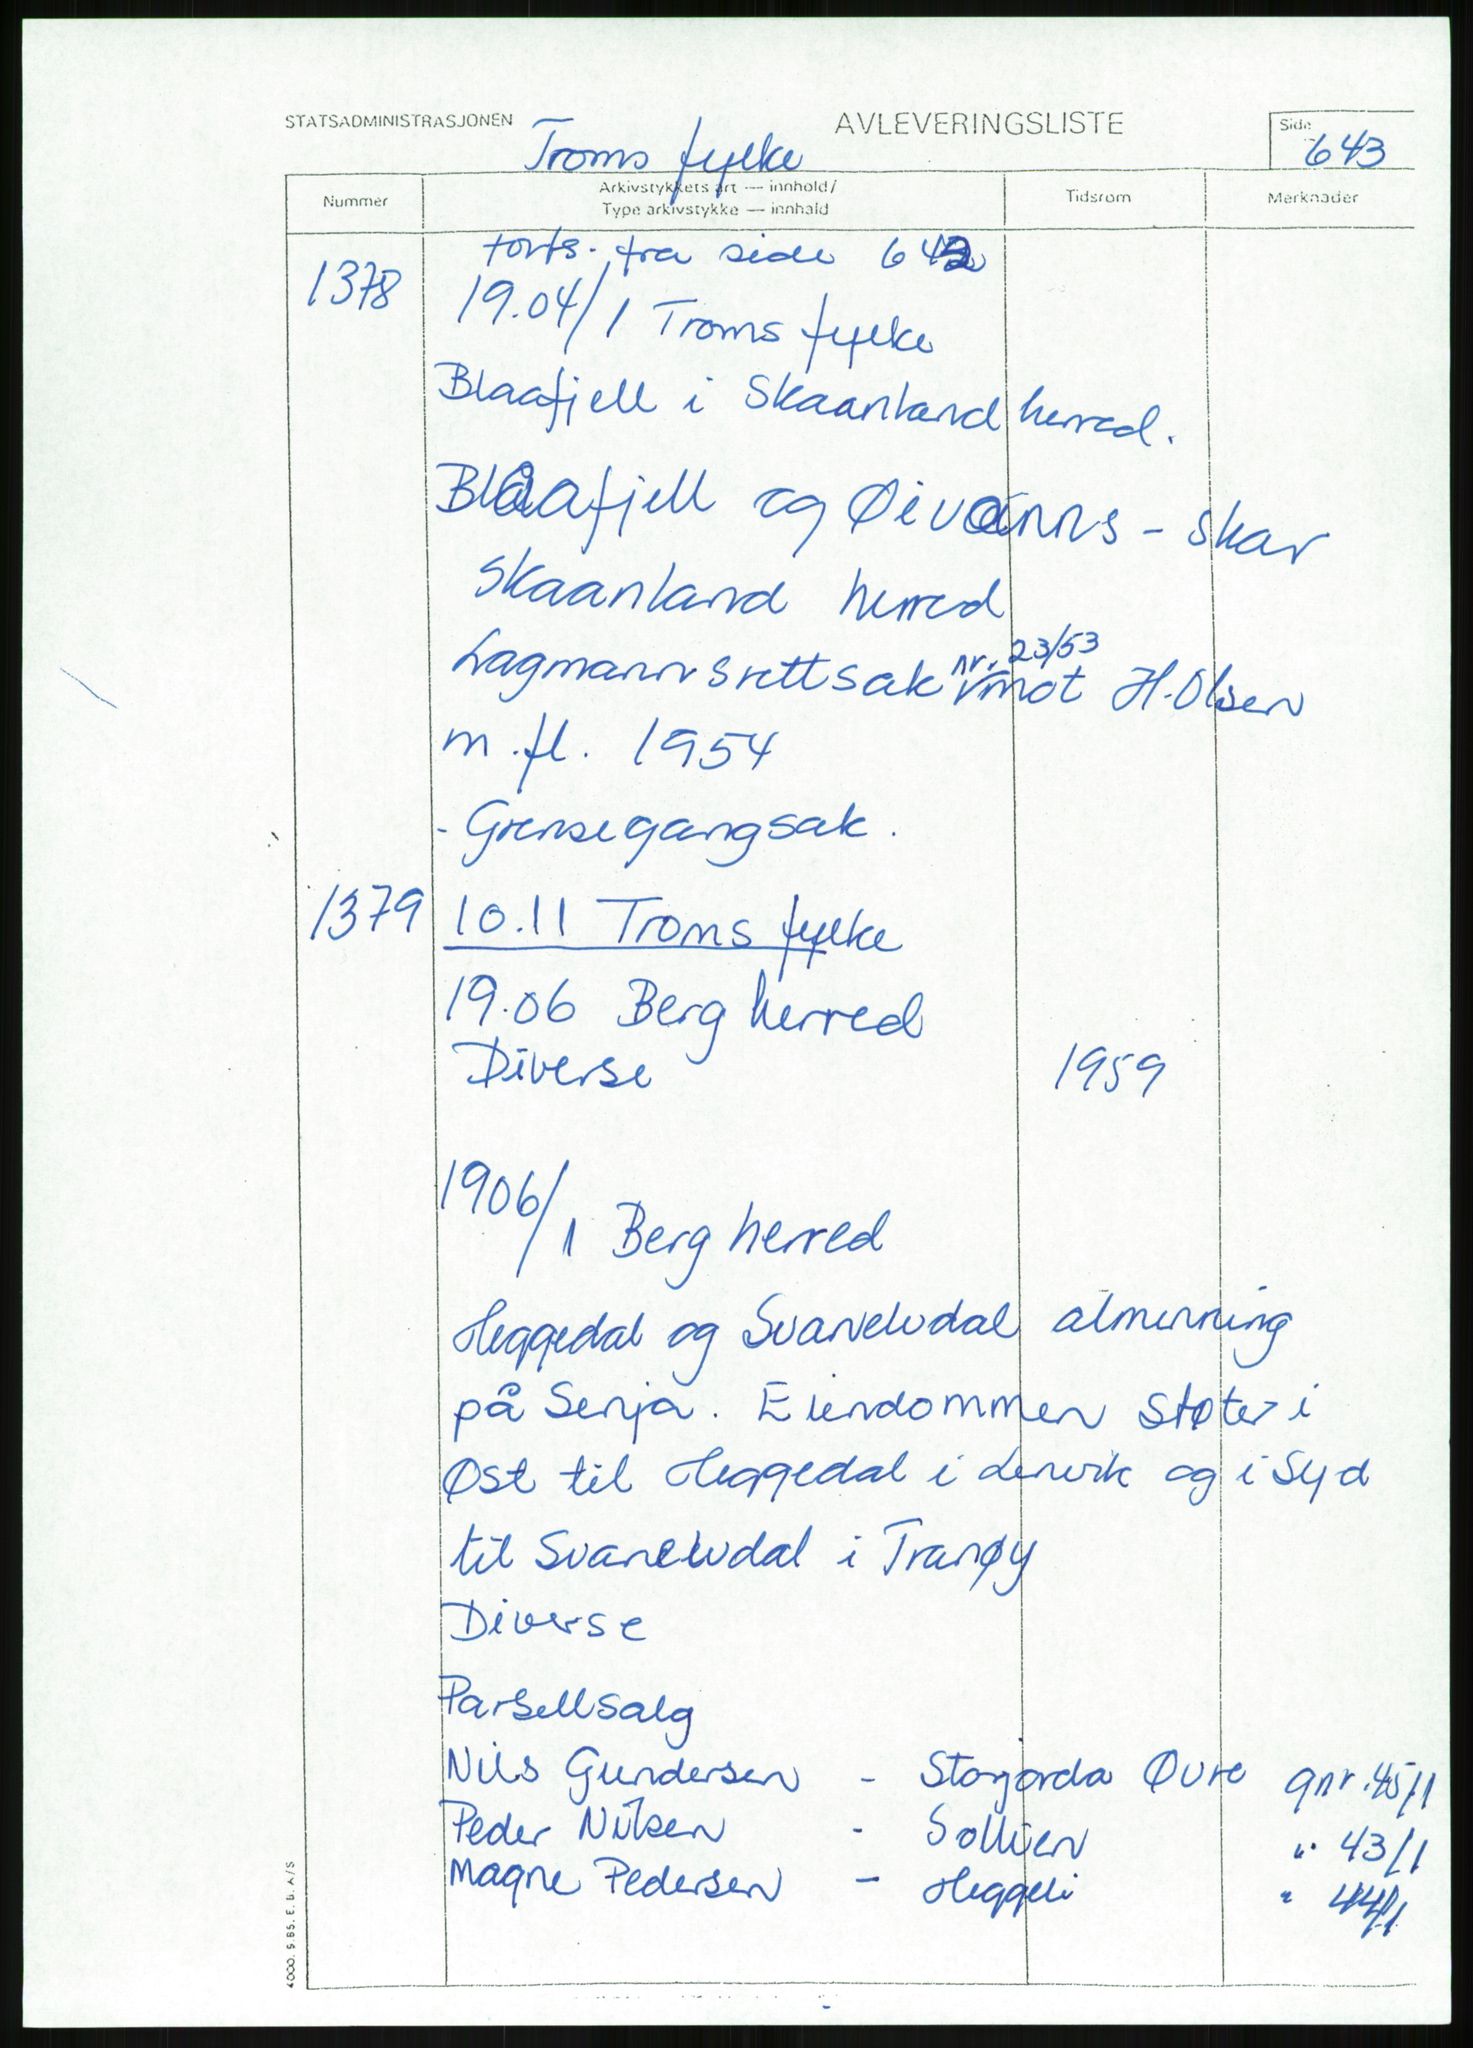 STATSADMINISTRASJONEN
AVLEVERINGSLISTE
Side
643
Troms fylke
Nummer
Arkivstykkets art — innhold/
Type arkivstykke — innhald
Tidsrom
Merknader
forts. fra side 642
1378 19.04/1 Troms fylke
Blaafjell i Skaanland herred.
Blåafjell og Øivanns - skar
Skaanland herred
Lagmannsrettsak nr. 23/53 mot H. Olsen
m.fl. 1954
- Grensegangsak.
1379 10.11 Troms fylke
19.06 Berg herred
Diverse 1959
1906/1 Berg herred
Heggedal og Svanelvdal almenning
på Senja. Eiendommen støter i
Øst til Heggedal i Lenvik og i Syd
til Svanelvdal i Tranøy
Diverse
Parsellsalg
Nils Gundersen - Storjorda Øvre gnr. 45/1
Peder Nilsen - Sollien " 43/1
Magne Pedersen - Heggeli " 44/1
4000. 5.85. E. B. A/S